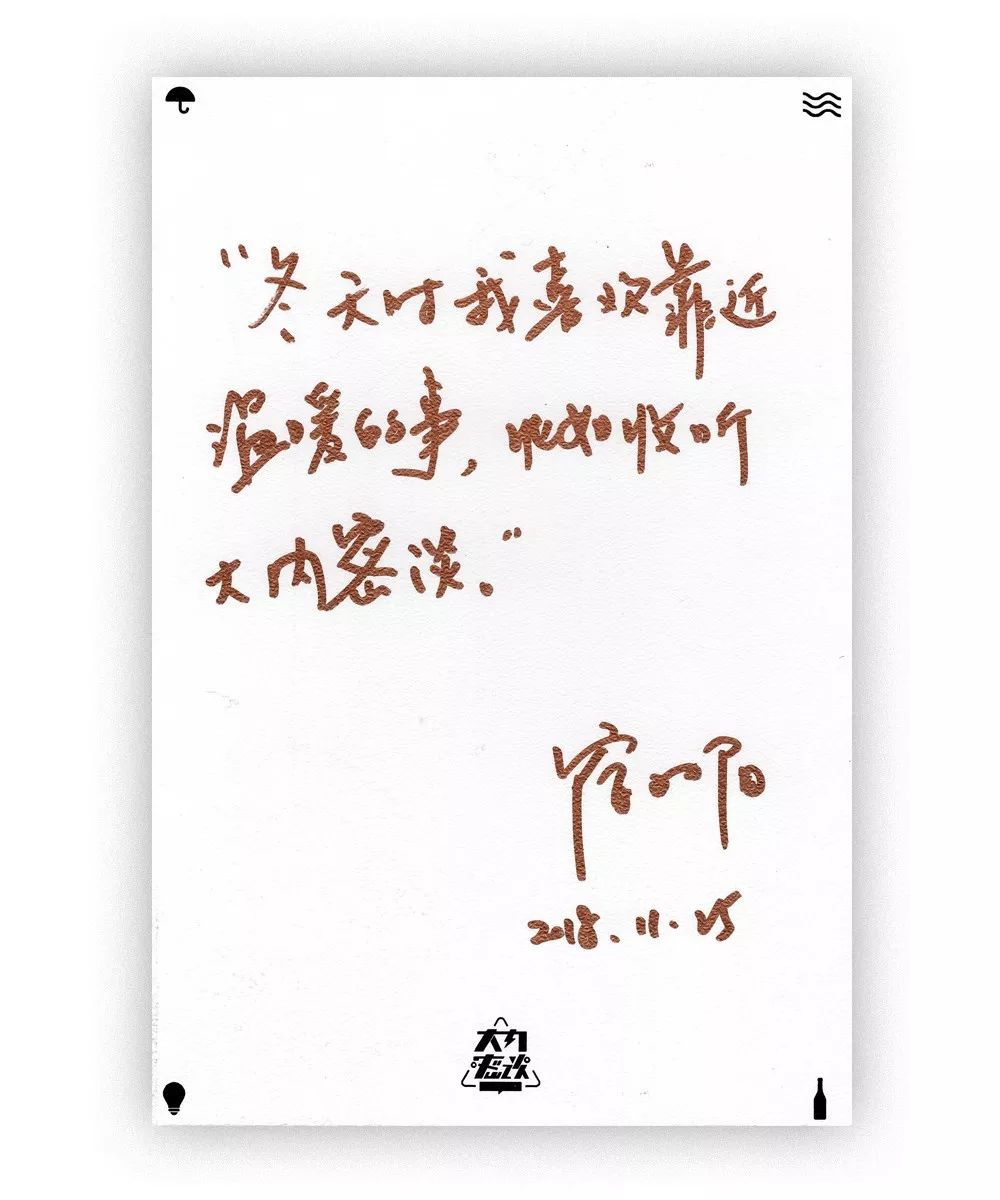 “冬天时我喜欢靠近
温暖的事，比如收听
大内密谈。”
2018.11.25
大内
密谈